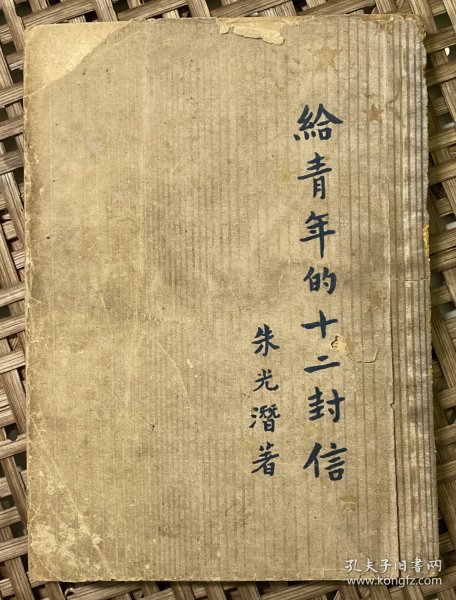 給青年的十二封信
朱光潛著
孔夫子旧书网
www.kongfz.com